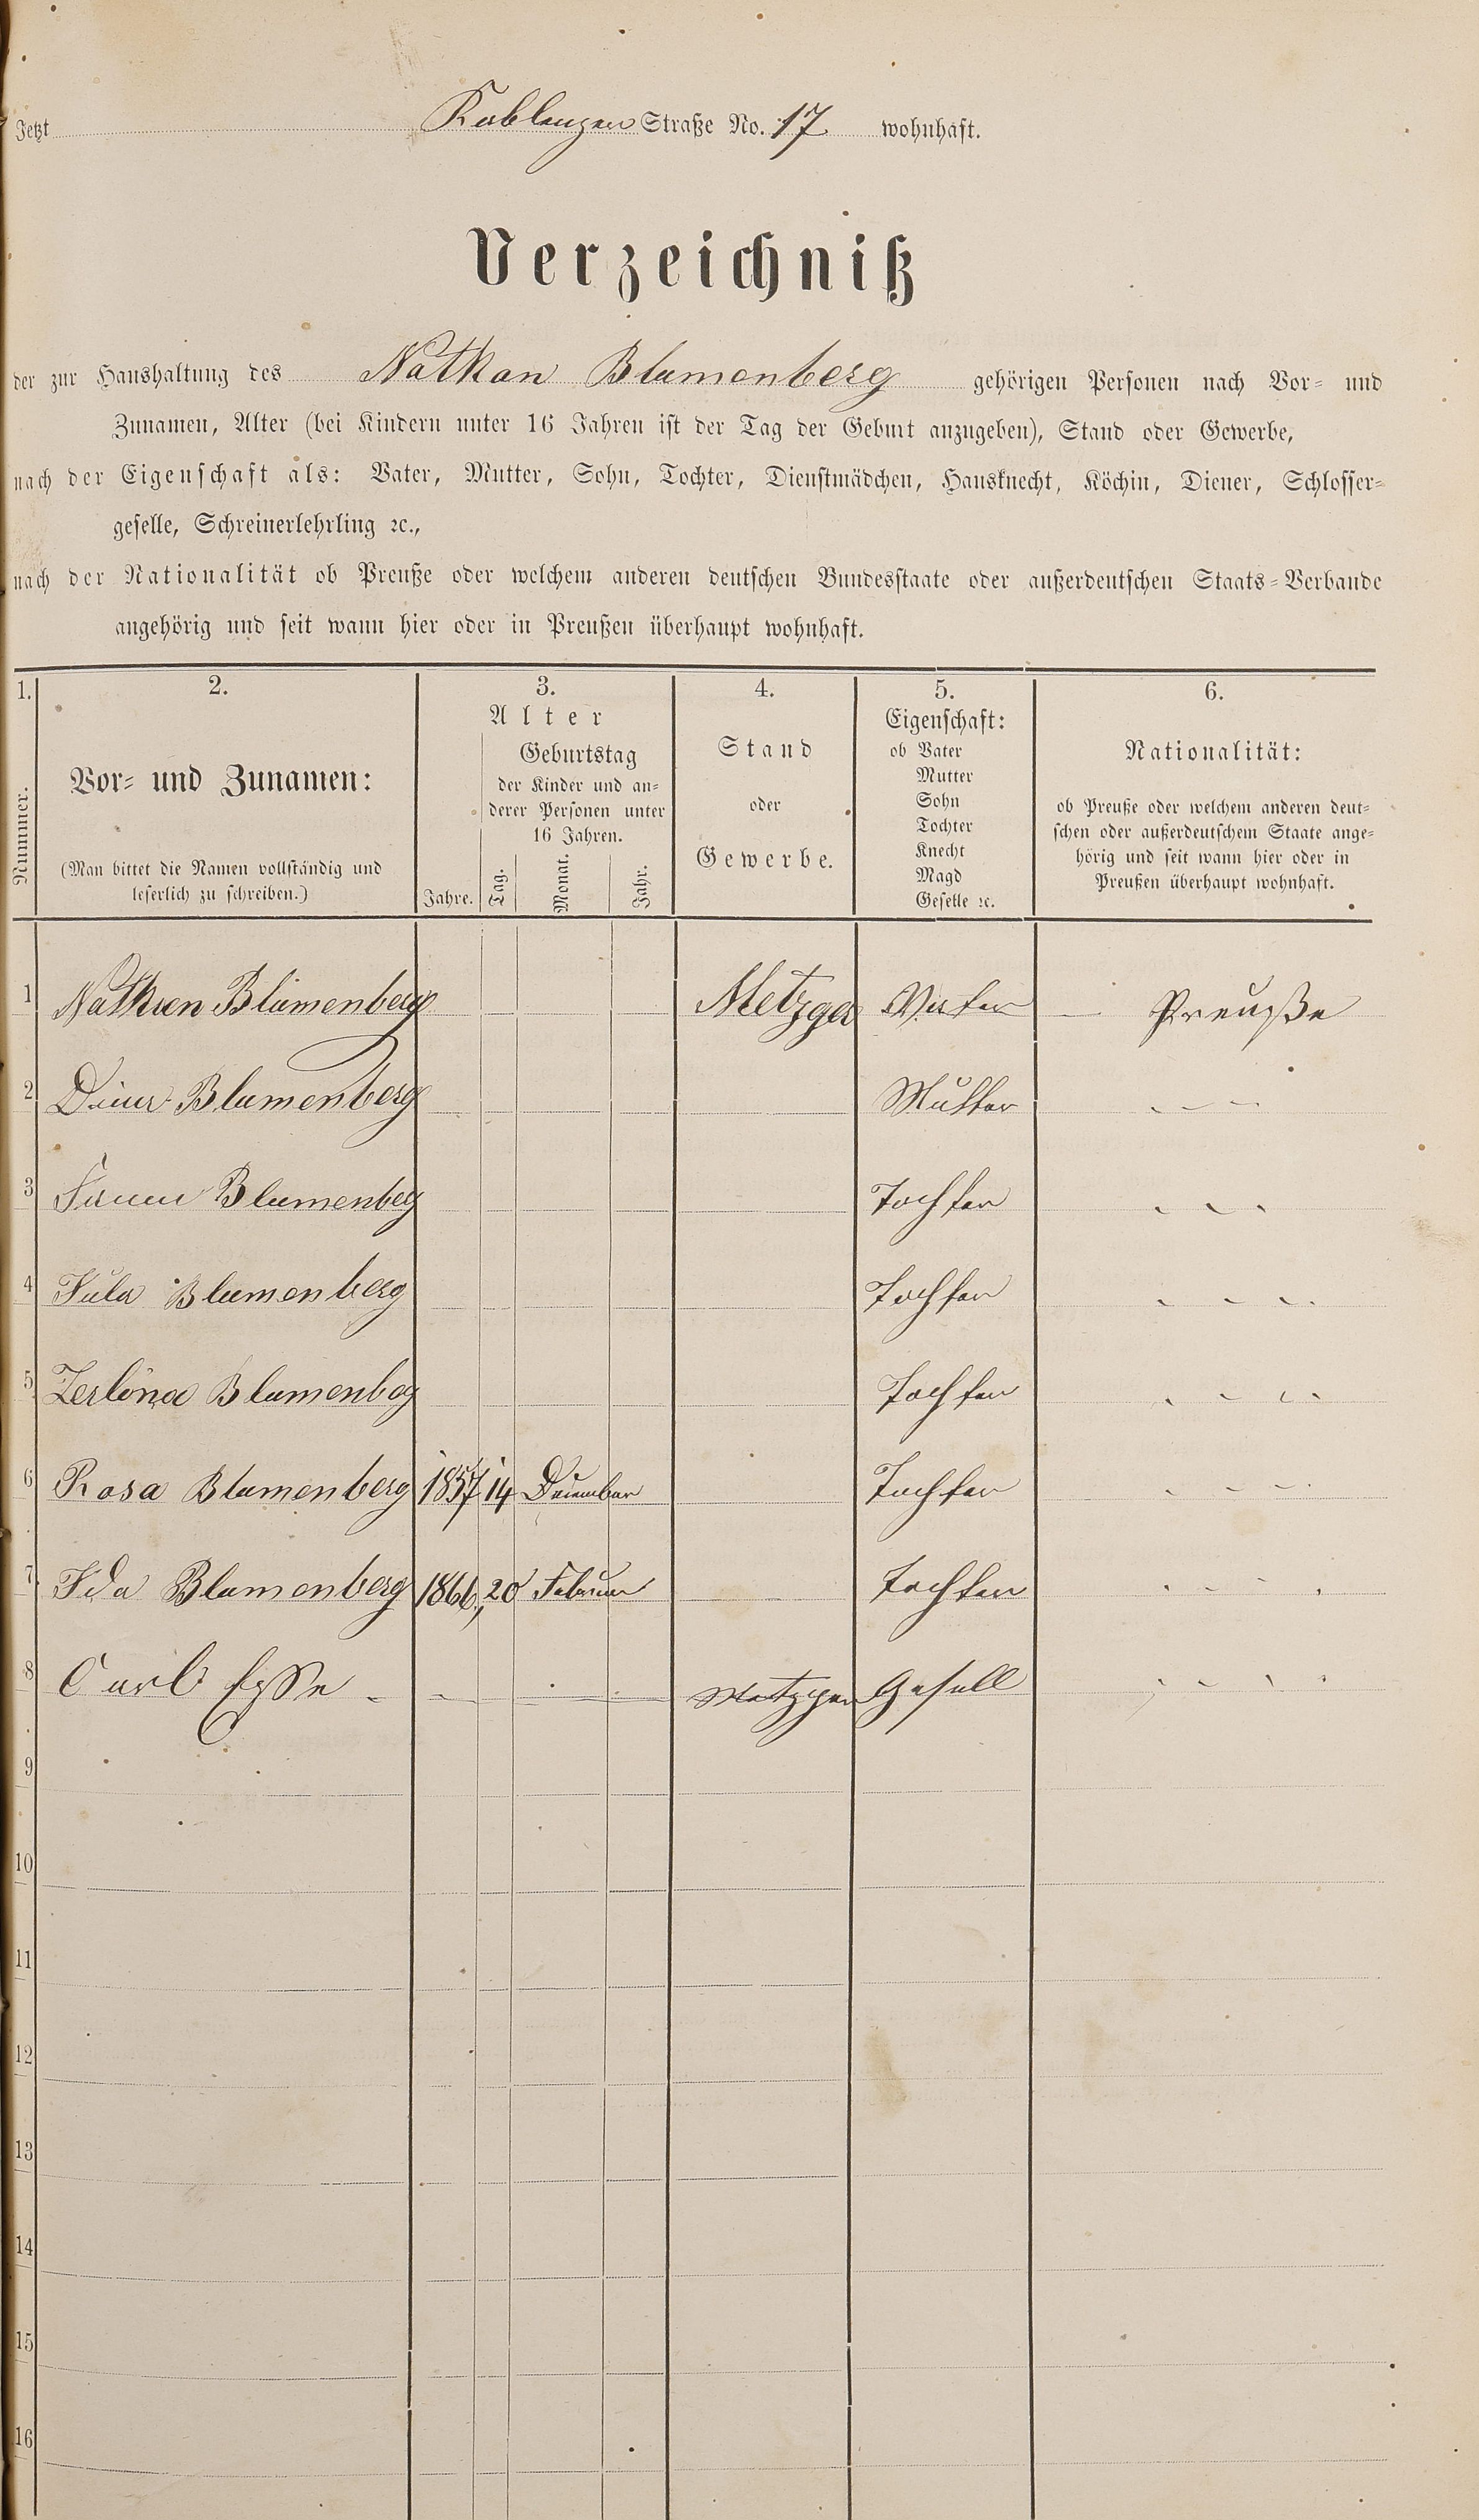 Jetzt Koblenzer Straße No. 17 wohnhaft.
Verzeichniß
der zur Haushaltung des Nathan Blumenberg gehörigen Personen nach Vor- und
Zunamen, Alter (bei Kindern unter 16 Jahren ist der Tag der Geburt anzugeben), Stand oder Gewerbe,
nach der Eigenschaft als: Vater, Mutter, Sohn, Tochter, Dienstmädchen, Hausknecht, Köchin, Diener, Schlosser-
geselle, Schreinerlehrling ꝛc.,
nach der Nationalität ob Preuße oder welchem anderen deutschen Bundesstaate oder außerdeutschen Staats-Verbande
angehörig und seit wann hier oder in Preußen überhaupt wohnhaft.
1. 2. 3. 4. 5. 6.
Nummer.
Vor- und Zunamen:
(Man bittet die Namen vollständig und
leserlich zu schreiben.)
Alter
Jahre.
Geburtstag
der Kinder und an-
derer Personen unter
16 Jahren.
Tag. Monat. Jahr.
Stand
oder
Gewerbe.
Eigenschaft:
ob Vater
Mutter
Sohn
Tochter
Knecht
Magd
Geselle ꝛc.
Nationalität:
ob Preuße oder welchem anderen deut-
schen oder außerdeutschem Staate ange-
hörig und seit wann hier oder in
Preußen überhaupt wohnhaft.
1 Nathan Blumenberg Metzger Vater Preuße
2 Blumenberg Mutter
3 Blumenberg Tochter
4 Jula Blumenberg Tochter
5 Zerlina Blumenberg Tochter
6 Rosa Blumenberg 1857 14 December Tochter
7 Ida Blumenberg 1866 20 Februar Tochter
8 Carl Metzger Gesell
9
10
11
12
13
14
15
16